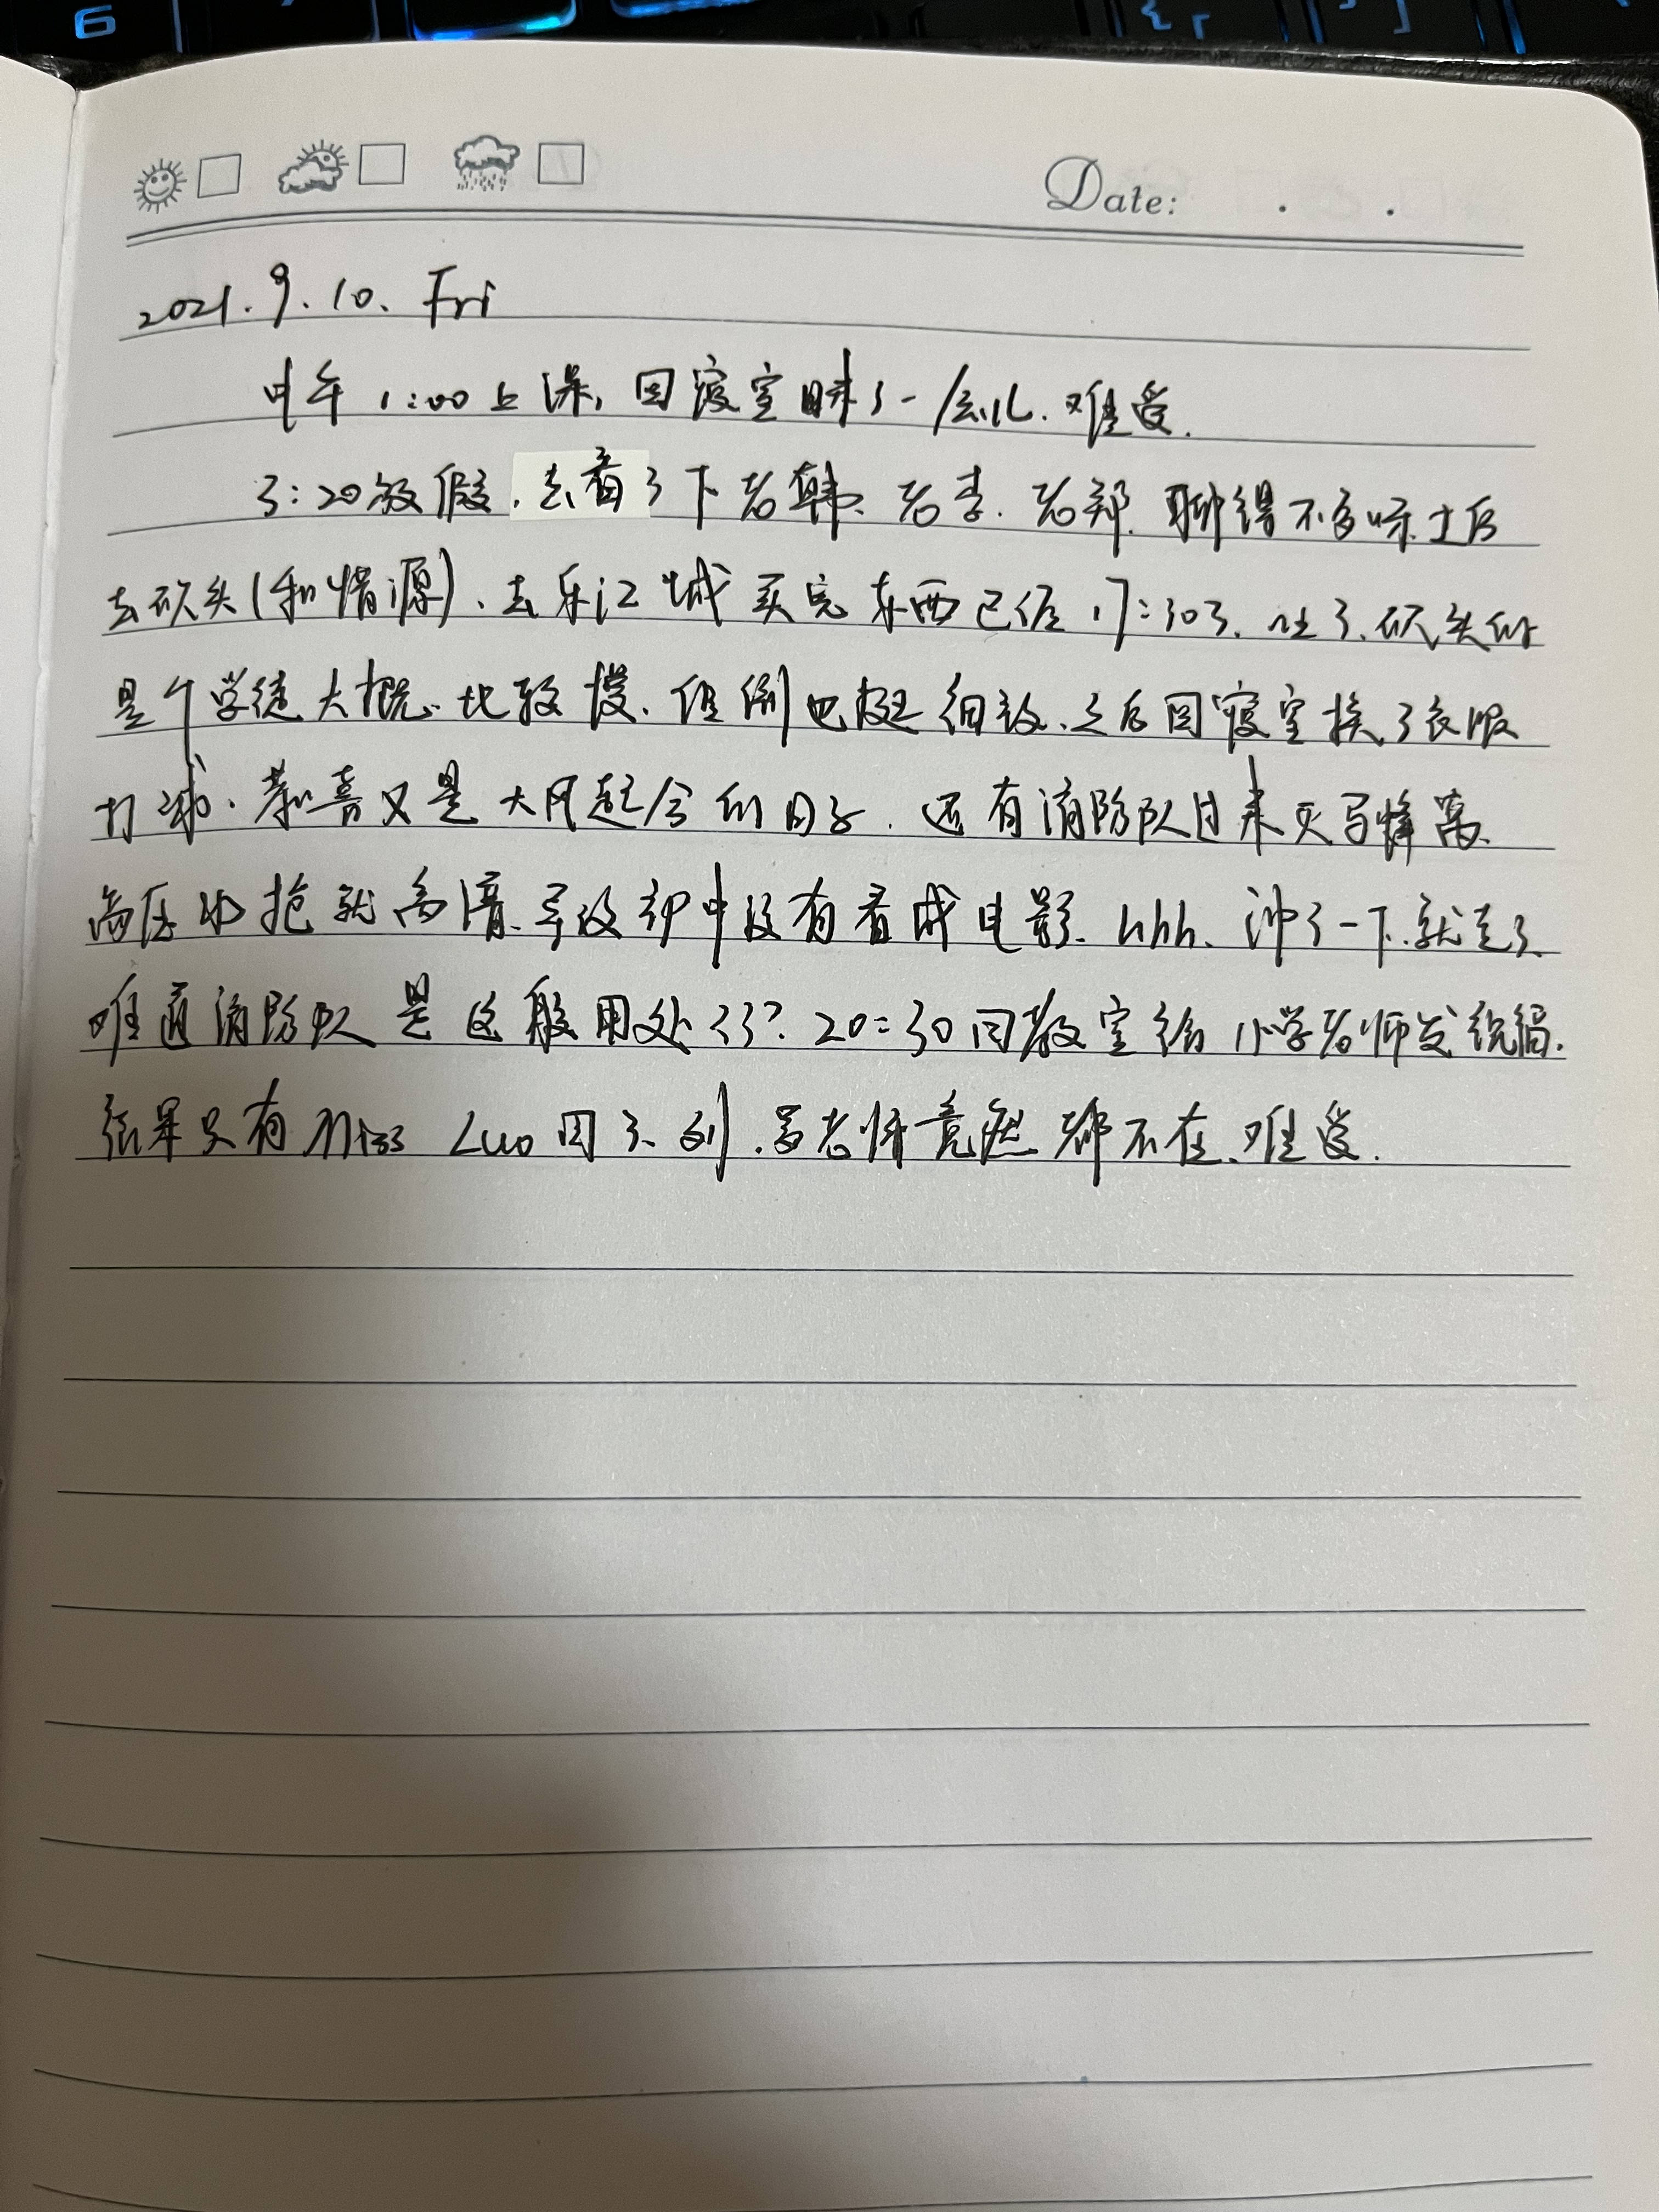 6
Date: . .
2021.9.10. Fri
中午1:00上课,回寝室眯了一会儿.难受.
3:20放假.去看了下老韩、老李.老郑.聊得不多
去砍头(和情源)、去乐江城买完东西已经17:30了、吐了.砍头的
是个学徒大概.比较慢.但倒也挺细致.之后回寝室换了衣服
打球.恭喜又是大风起兮的日子.还有消防队过来灭马蜂窝.
高压水枪就离谱.导致初中没有看成电影.hhh、冲了一下.就走了.
难道消防队是这般用处??? 20:30回教室给小学老师发统稿.
结果只有Miss Luo回了、刘.老师竟然都不在、难受.